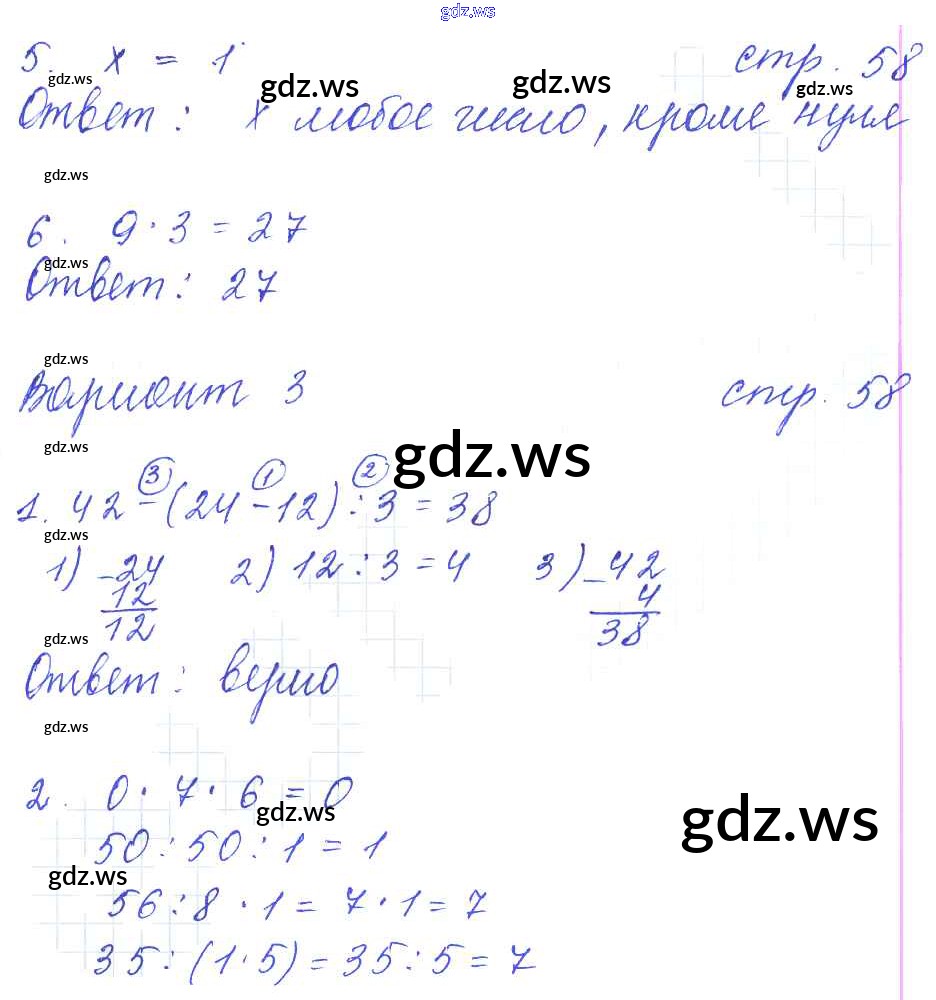 gdz.ws
5. x = 1 стр. 58
gdz.ws gdz.ws gdz.ws gdz.ws
Ответ: x любое число, кроме нуля
gdz.ws
6. 9 · 3 = 27
gdz.ws
Ответ: 27
gdz.ws
Вариант 3 стр. 58
gdz.ws gdz.ws
3 1 2
1. 42 - (24 - 12) : 3 = 38
gdz.ws
1) - 24 2) 12 : 3 = 4 3) - 42
12 4
12 38
gdz.ws gdz.ws gdz.ws
Ответ: верно
gdz.ws
2. 0 · 7 · 6 = 0
gdz.ws gdz.ws
50 : 50 : 1 = 1
gdz.ws
56 : 8 · 1 = 7 · 1 = 7
35 : (1 · 5) = 35 : 5 = 7